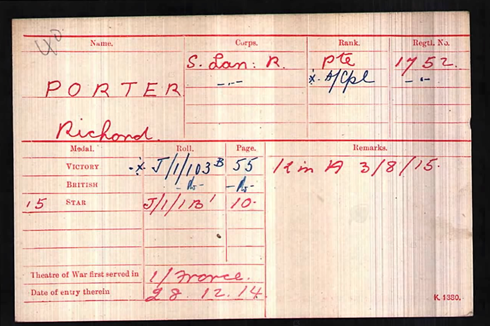 40.
Name. Corps. Rank. Regtl. No.
S. Lan: R. Pte 1752.
PORTER -..- x. A/Cpl -..-
Richard.
Medal. Roll. Page. Remarks.
VICTORY -x- J/1/103B 55 K in A 3/8/15.
BRITISH -do- -do-
15 STAR J/1/1B' 10.
Theatre of War first served in 1/France.
Date of entry therein 28.12.14
K. 1380.